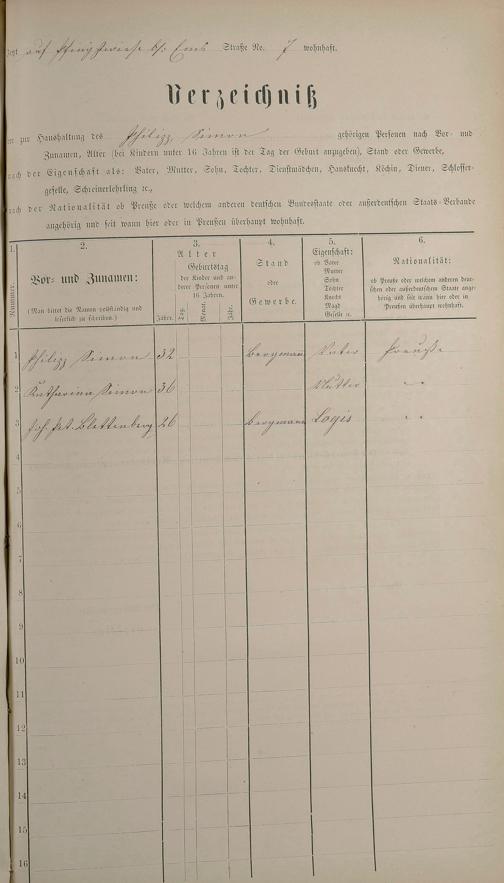 Jetzt auf Pfingstwiese b/ Ems Straße No. 7 wohnhaft.
Verzeichniß
der zur Haushaltung des Philipp Simon gehörigen Personen nach Vor- und
Zunamen, Alter (bei Kindern unter 16 Jahren ist der Tag der Geburt anzugeben), Stand oder Gewerbe,
nach der Eigenschaft als: Vater, Mutter, Sohn, Tochter, Dienstmädchen, Hausknecht, Köchin, Diener, Schlosser-
geselle, Schreinerlehrling ec.,
nach der Nationalität ob Preuße oder welchem anderen deutschen Bundesstaate oder außerdeutschen Staats-Verbande
angehörig und seit wann hier oder in Preußen überhaupt wohnhaft.
1. 2. 3. 4. 5. 6.
Nummer.
Vor- und Zunamen:
(Man bittet die Namen vollständig und
leserlich zu schreiben.)
Alter
Geburtstag
der Kinder und an-
derer Personen unter
16 Jahren.
Jahre. Tag. Monat. Jahr.
Stand
oder
Gewerbe.
Eigenschaft:
ob Vater
Mutter
Sohn
Tochter
Knecht
Magd
Geselle ec.
Nationalität:
ob Preuße oder welchem anderen deut-
schen oder außerdeutschen Staate ange-
hörig und seit wann hier oder in
Preußen überhaupt wohnhaft.
1 Philipp Simon 32 Bergmann Vater Preuße
2 Katharina Simon 36 Mutter "
3 Joh. Pet. Blettenberg 26 Bergmann Logis "
4
5
6
7
8
9
10
11
12
13
14
15
16